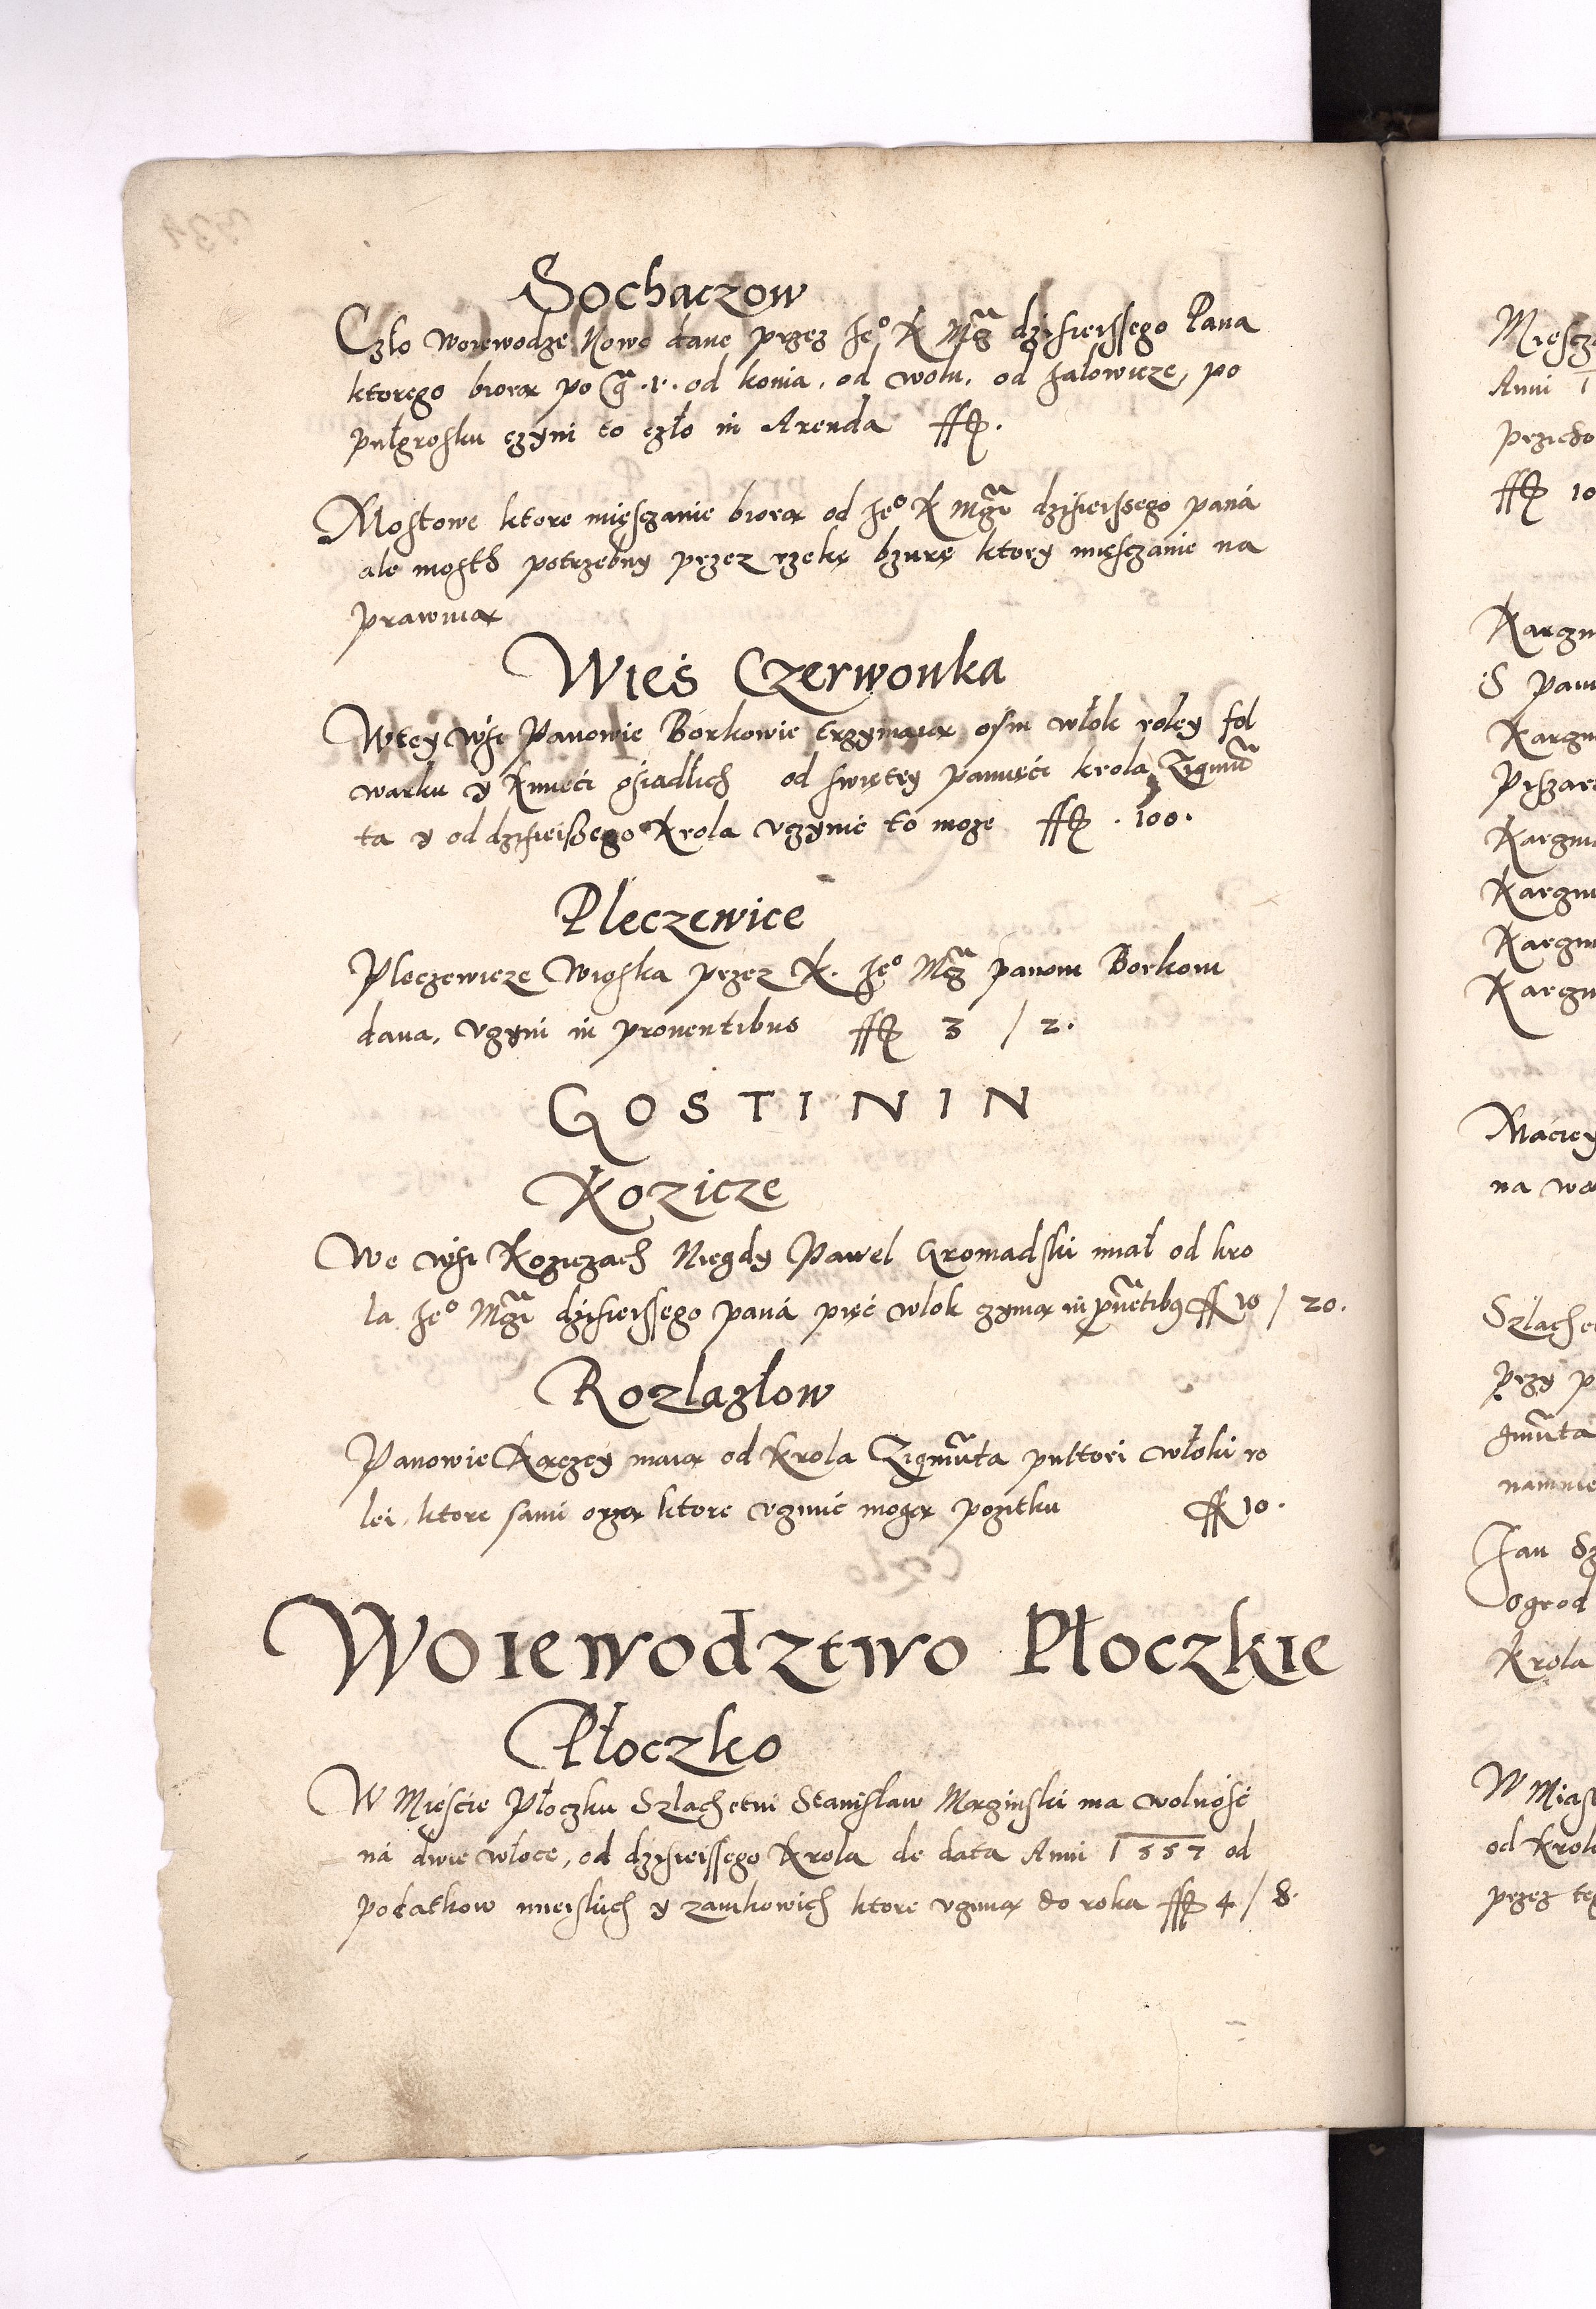 Sochaczow
Czło woiewodze Nowo dane przez Je° K Mcz dzisieissego Pana
ktorego biorą po g .1. od konia. od wołu. od Jalowicze, po
pułgrosku czyni to czło in Arenda ff.
Mostowe ktore mięsczanie biorą od Je° K Mczi dzisieissego paná
ale mosth potrzebny przez rzekę bzurę ktory mięsczanie na
prawuią
Wieś Czerwonka
W tey wsi Panowie Borkowie trzymaią osm włok roley fol
warku y Kmieci osiadlich od swiętey pamięci krola Zigmū
ta y od dzisieiszego Krola vczynic to moze ff . 100.
Pleczewice
Pleczewicze Wioska przez K. Je° Mcz panom Borkom
dana, vczyni in prouentibus ff 3 / 2.
GOSTININ
Kozicze
We wsi Koziczach Niegdy Paweł Gromadski miał od kro
la Je° Mczi dzisieissego paná pięć włok czynią in puētibq ff 10 / 20.
Rozlazłow
Panowie Karczey maią od Krola Zigmūta pułtori włoki ro
lei, ktore sami orzą ktore vczinić mogą pozitku ff 10.
Woiewodztwo Płoczkie
Płoczko
W Mięście Płoczku Szlachetni Stanisław Marginski ma wolność
ná dwie włoce, od dzisieissego Krola de data Anni 1557 od
podatkow mieiskich y zamkowich ktore vczinią do roka ff 4 / 8.
Anni 1
ff 10
Krola
na wo
ogrod
W Mias
od Krol